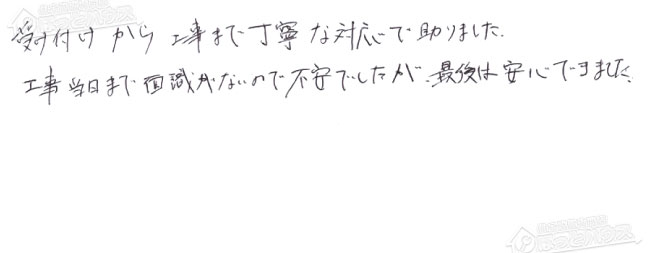 受け付けから工事まで丁寧な対応で助りました。
工事当日まで面識がないので不安でしたが、最後は安心できました。